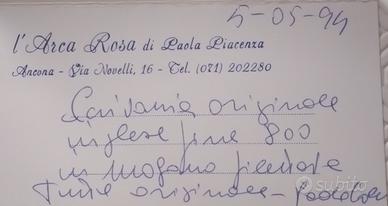 5-05-94
l'Arca Rosa di Paola Piacenza
Ancona - Via Novelli, 16 - Tel. (071) 202280
Scrivania originale
inglese fine 800
in mogano
Tutta originale -
subito